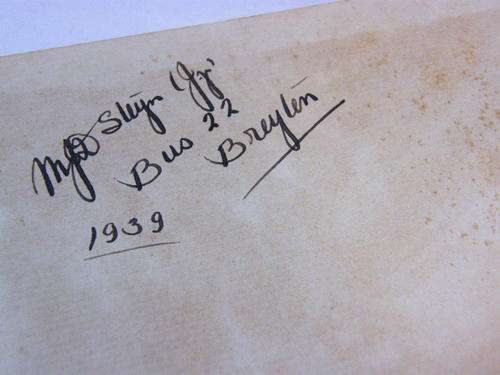 Steyn 'Jr'
Bus 22
Breyten
1939